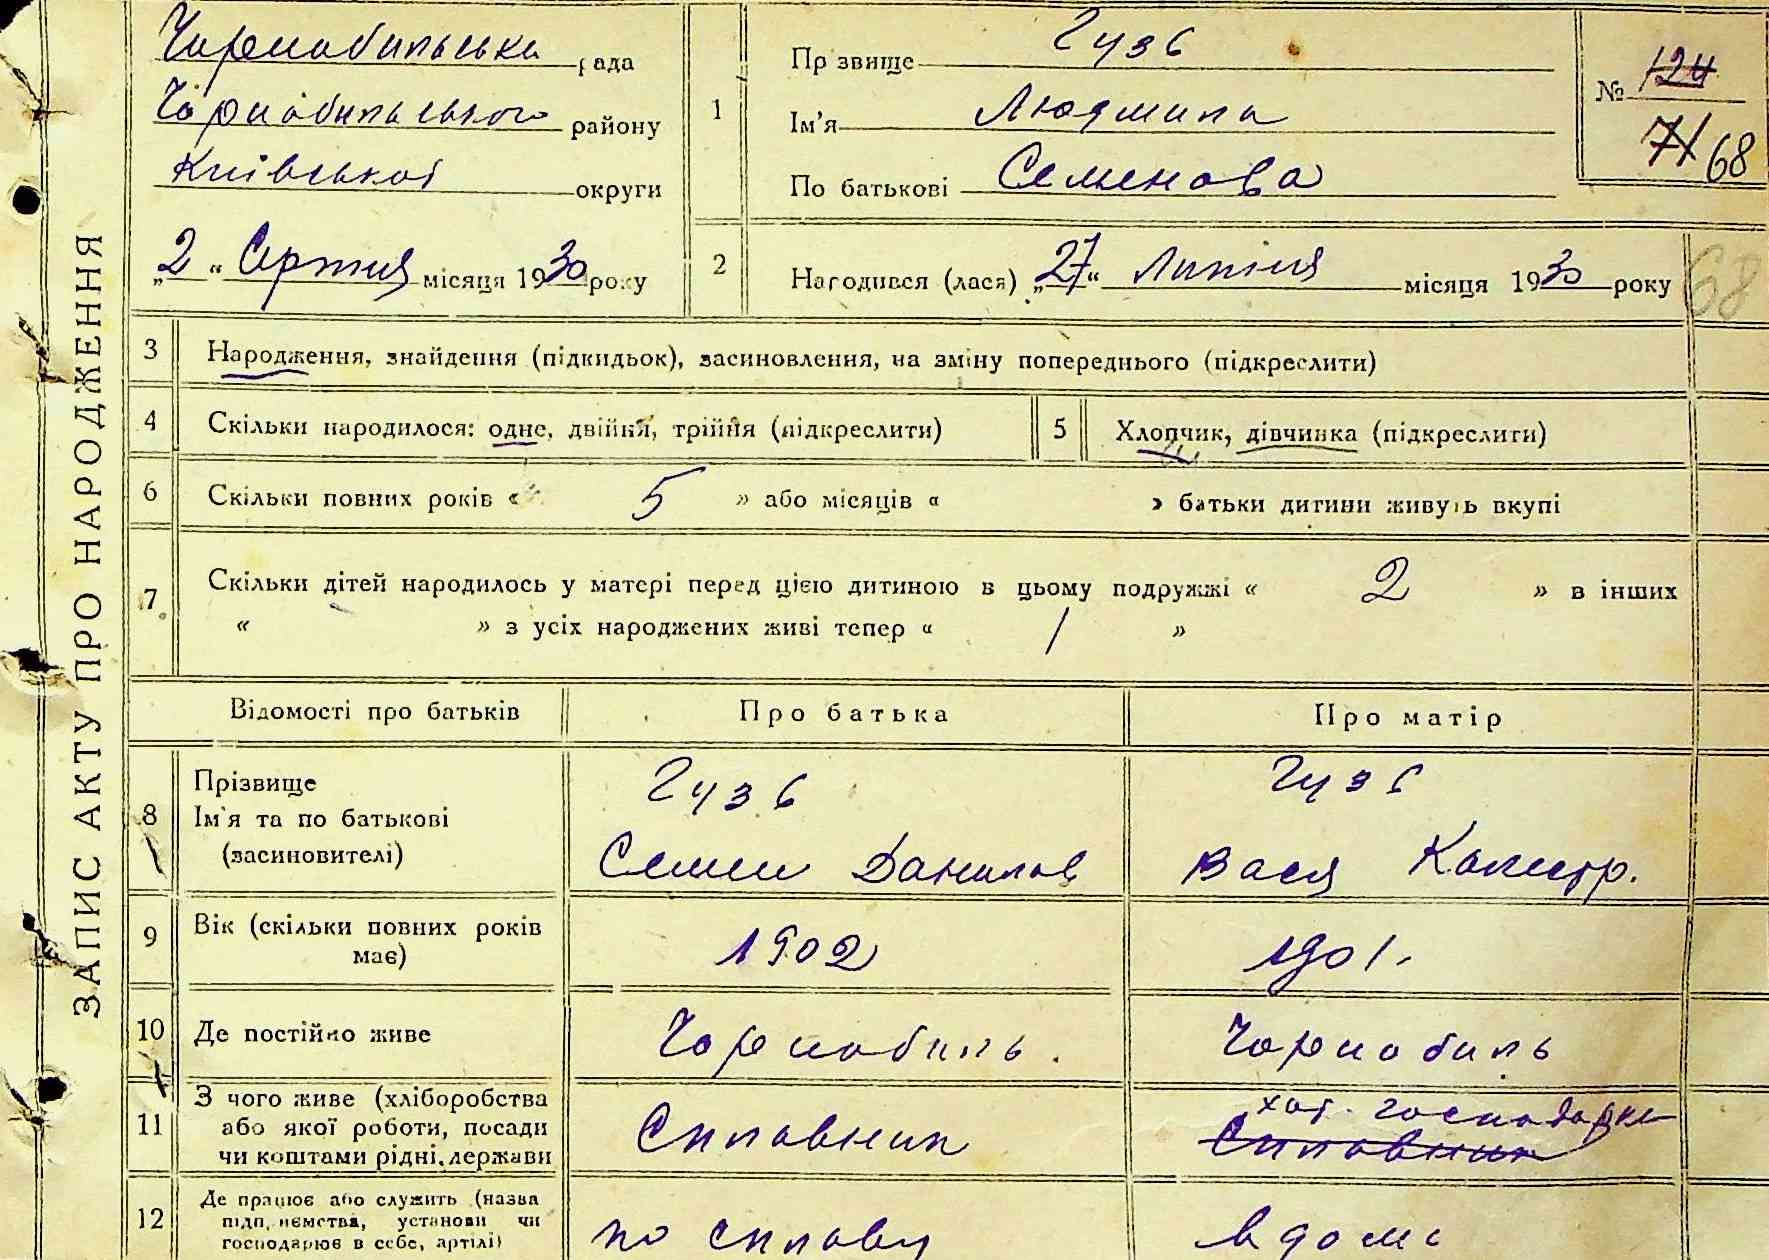 ЗАПИС АКТУ ПРО НАРОДЖЕННЯ
Чорнобильська рада
Чорнобильського району
Київської округи
„2“ Серпня місяця 1930 року
1
Прізвище Гузь
Ім'я Людмила
По батькові Семенова
№ 124
71 68
2
Народився (лася) „27“ Липня місяця 1930 року
68
3 Народження, знайдення (підкидьок), засиновлення, на зміну попереднього (підкреслити)
4 Скільки народилося: одне, двійня, трійня (підкреслити)
5 Хлопчик, дівчинка (підкреслити)
6 Скільки повних років « 5 » або місяців « » батьки дитини живуть вкупі
7 Скільки дітей народилось у матері перед цією дитиною в цьому подружжі « 2 » в інших
« » з усіх народжених живі тепер « 1 »
Відомості про батьків Про батька Про матір
8 Прізвище Гузь Гузь
Ім'я та по батькові
(засиновителі) Семен Данилов Вася
9 Вік (скільки повних років має) 1902 1901.
10 Де постійно живе Чорнобиль. Чорнобиль
11 З чого живе (хліборобства
або якої роботи, посади
чи коштами рідні, держави Сплавник хат. господарка Сплавник
12 Де працює або служить (назва
підприємства, установи чи
господарює в себе, артілі) по сплаву вдома